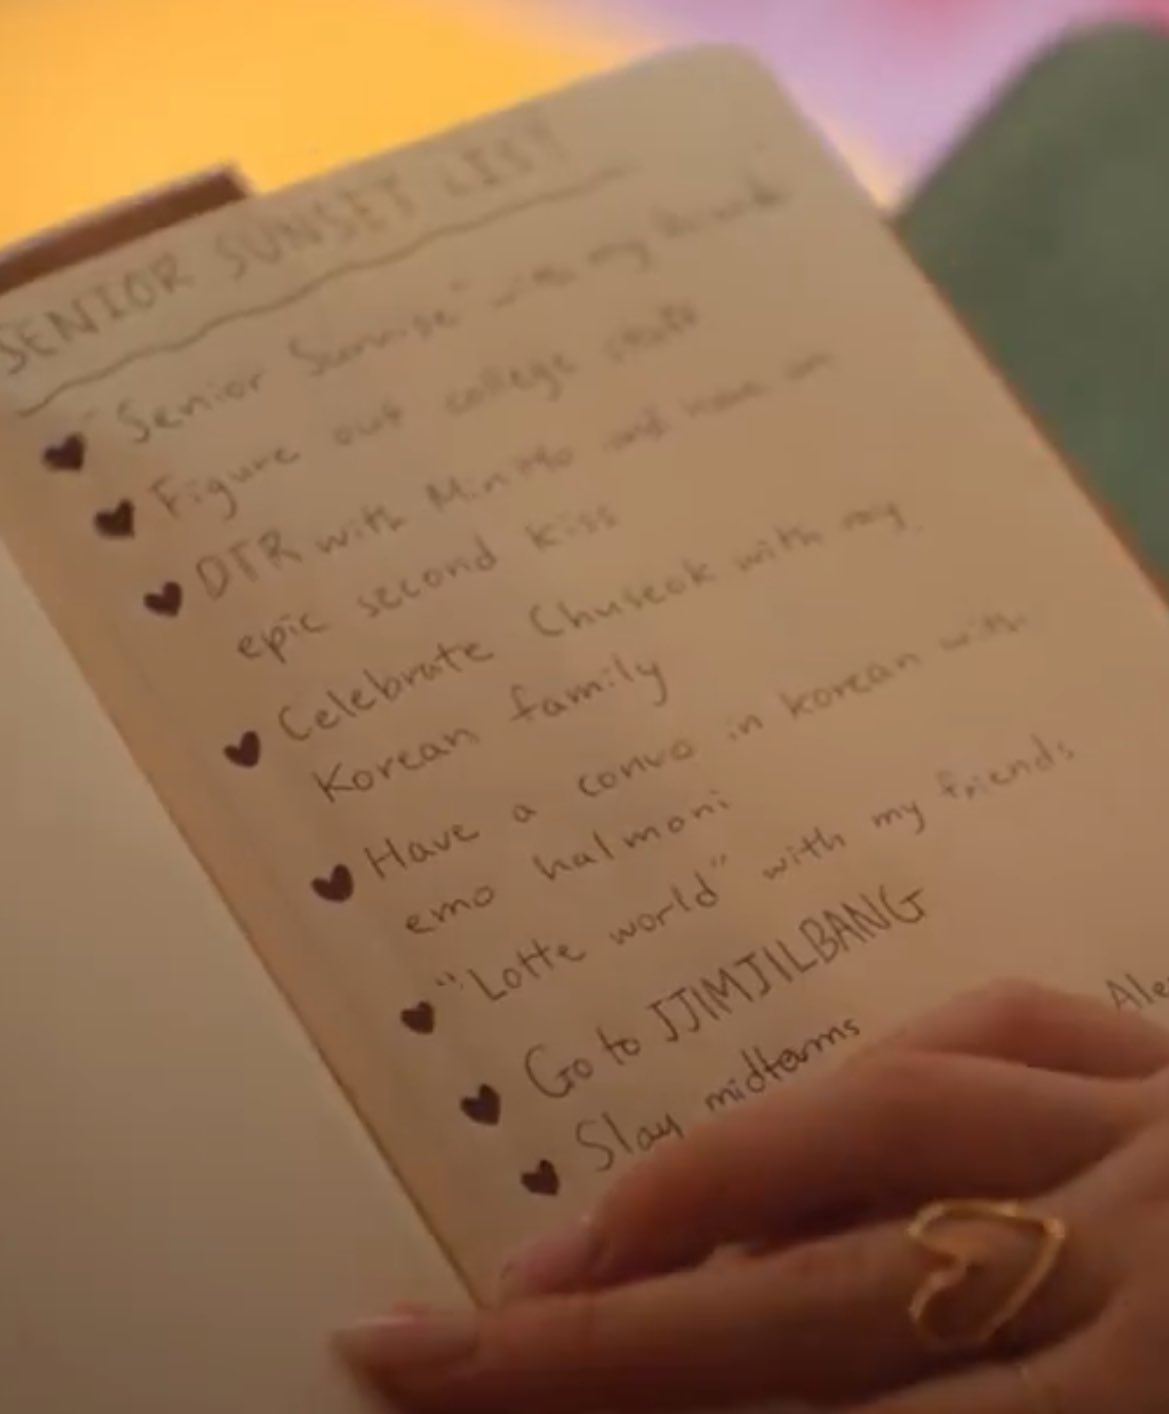 SENIOR SUNSET LIST
"Senior Sunrise" with my
Figure out college stuff
DTR with Min Ho and have an
epic second kiss
Celebrate Chuseok with my
Korean family
Have a convo in korean with
emo halmoni
"Lotte world" with my friends
Go to JJIMJILBANG
Slay midterms
Ale